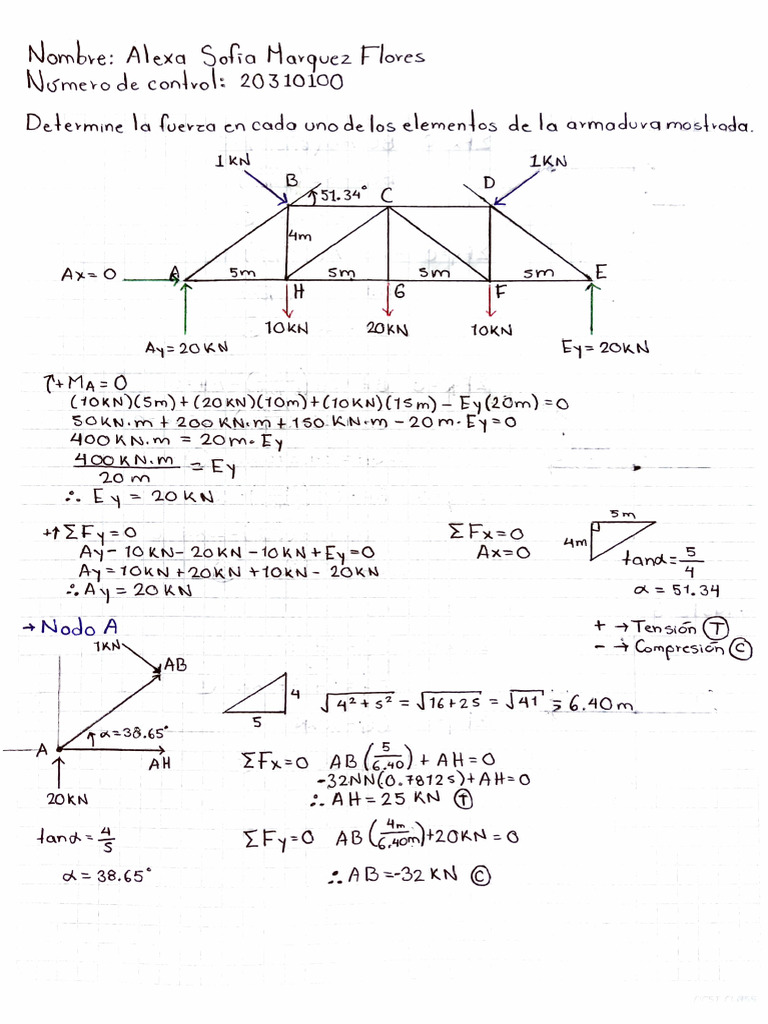 Nombre: Alexa Sofia Marquez Flores
Número de control: 20310100
Determine la fuerza en cada uno de los elementos de la armadura mostrada.
1 KN
1KN
B
51.34°
C
D
4m
Ax=0
A
5m
5m
5m
5m
E
H
G
F
10KN
20KN
10KN
Ay=20KN
Ey=20KN
↑+MA=0
(10KN)(5m)+(20KN)(10m)+(10KN)(15m)-Ey(20m)=0
50KN.m+200KN.m+150 KN.m-20m.Ey=0
400KN.m = 20m.Ey
400KN.m/20 m = Ey
∴ Ey = 20 KN
+↑ΣFy=0
Ay-10KN-20KN-10KN+Ey=0
Ay=10KN+20KN+10KN-20KN
∴Ay=20KN
ΣFx=0
Ax=0
5m
4m
tanα=5/4
α=51.34
+ → Tensión (T)
- → Compresión (C)
→ Nodo A
1KN
AB
A
α=38.65°
AH
20KN
tanα=4/5
α=38.65°
4
5
√4²+5² = √16+25 = √41 = 6.40m
ΣFx=0 AB(5/6.40)+AH=0
-32NN(0.78125)+AH=0
∴AH=25 KN (T)
ΣFy=0 AB(4m/6.40m)+20KN=0
∴AB=-32KN (C)